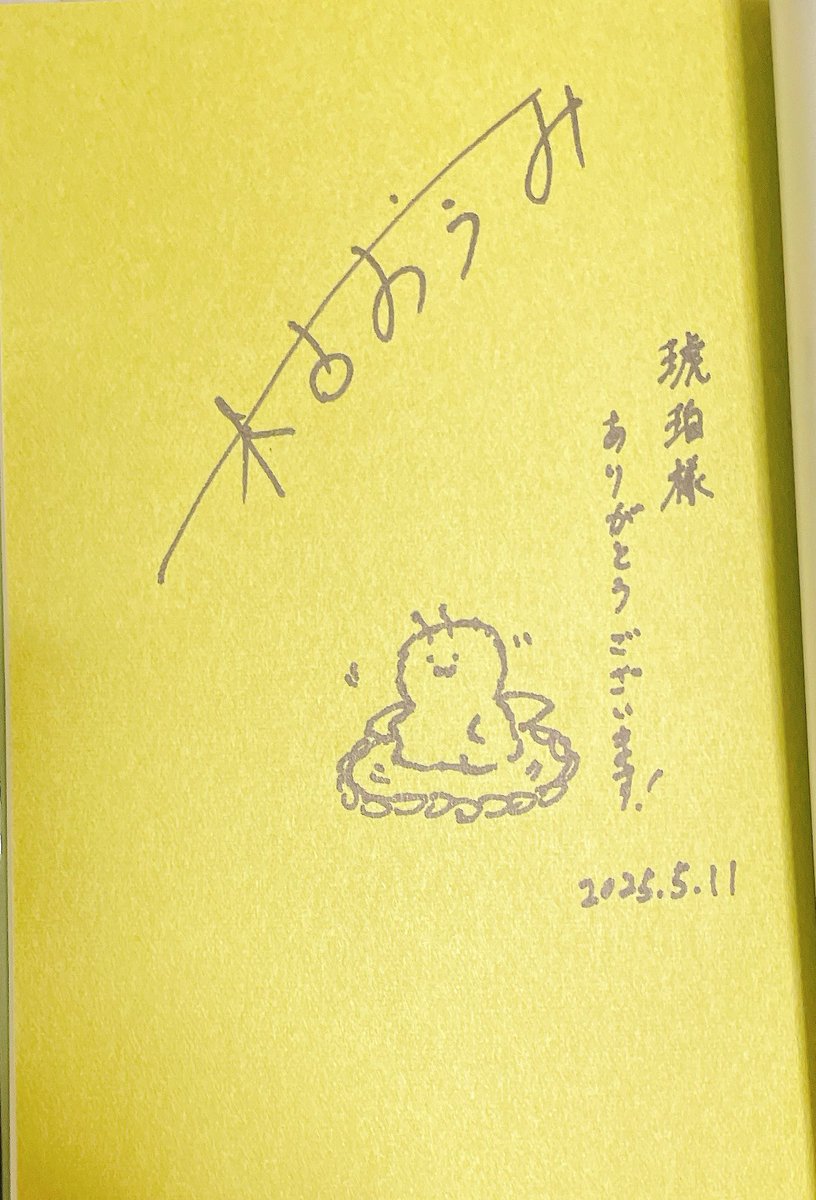 木古おうみ
琥珀様
ありがとうございます!
2025.5.11